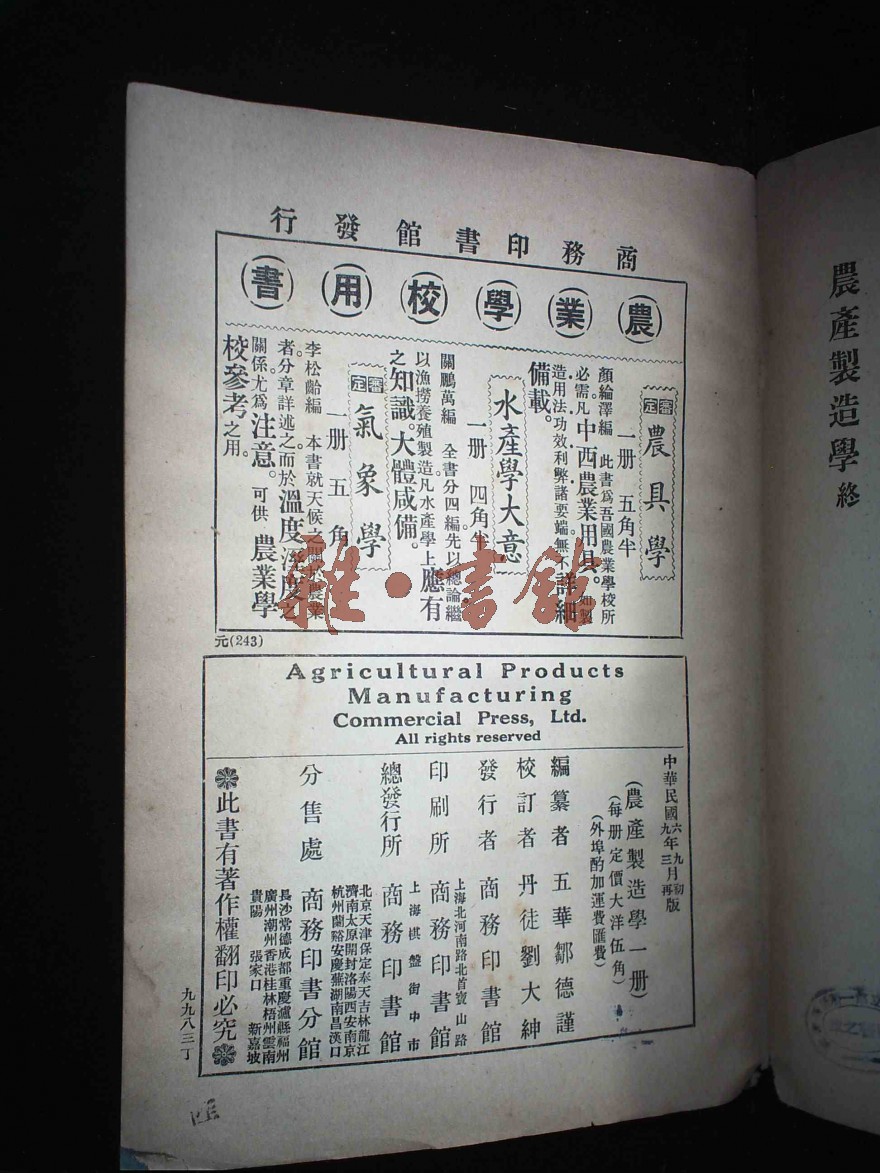 商務印書館發行
農業學校用書
審定 農具學
一册 五角半
顏綸澤編 此書爲吾國農業學校所
必需凡中西農業用具。如製
造用法功效利弊諸要端無不詳細
備載。
水產學大意
一册 四角半
關鵬萬編 全書分四編先以總論繼
以漁撈養殖製造凡水產學上應有
之知識。大體咸備。
審定 氣象學
一册 五角
李松齡編 本書就天候之關於農業
者。分章詳述之。而於溫度溼度之
關係尤爲注意。可供農業學
校參考之用。
元(243)
Agricultural Products
Manufacturing
Commercial Press, Ltd.
All rights reserved
中華民國六年九月初版
九年三月再版
(農產製造學一册)
(每册定價大洋伍角)
(外埠酌加運費匯費)
編纂者 五華鄒德謹
校訂者 丹徒劉大紳
發行者 商務印書館
上海北河南路北首寶山路
印刷所 商務印書館
上海棋盤街中市
總發行所 商務印書館
北京天津保定奉天吉林龍江
濟南太原開封洛陽西安南京
杭州蘭谿安慶蕪湖南昌漢口
分售處 商務印書分館
長沙常德成都重慶瀘縣福州
廣州潮州香港桂林梧州雲南
貴陽 張家口 新嘉坡
此書有著作權翻印必究
九九八三丁
農產製造學終
雜·書館